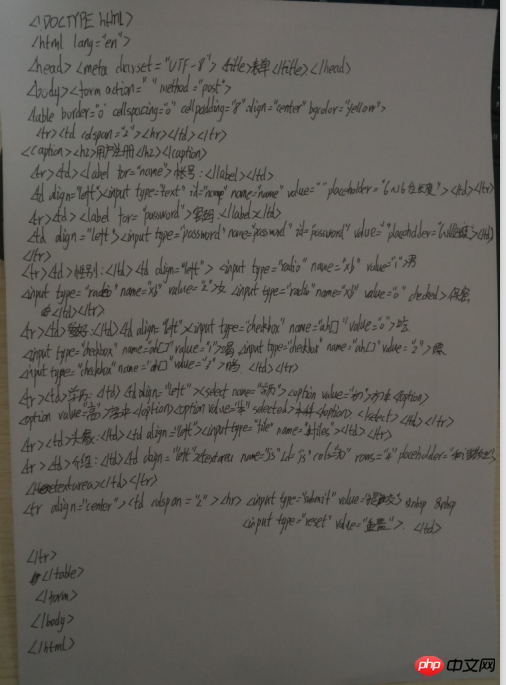 <!DOCTYPE html>
<html lang="en">
<head><meta charset="UTF-8"> <title>表单</title></head>
<body><form action=" " method="post">
<table border="0" cellspacing="0" cellpadding="8" align="center" bgcolor="yellow">
<tr><td colspan="2"><hr></td></tr>
<caption><h2>用户注册</h2></caption>
<tr><td><label for="name">帐号:</label></td>
<td align="left"><input type="text" id="name" name="name" value="" placeholder="6~16位长度"></td></tr>
<tr><td><label for="password">密码:</label></td>
<td align="left"><input type="password" name="password" id="password" value="" placeholder=
</tr>
<tr><td>性别:</td><td align="left"> <input type="radio" name="xb" value="1">男
<input type="radio" name="xb" value="2">女 <input type="radio" name="xb" value="0" checked>保密
</td></tr>
<tr><td> :</td><td align="left"><input type="checkbox" name="ah[]" value="0">吃
<input type="checkbox" name="ah[]" value="1">喝 <input type="checkbox" name="ah[]" value="2">
<input type="checkbox" name="ah[]" value="3"> </td></tr>
<tr><td>学历:</td><td align="left"><select name= <option value= </option>
<option value= </option><option value= selected> </option> </select></td></tr>
<tr><td>头像:</td><td align="left"><input type="file" name= ></td></tr>
<tr><td>介绍:</td><td align="left"><textarea name="js" id="js" cols= rows="6" placeholder=
textarea></td></tr>
<tr align="center"><td colspan="2"><hr> <input type="submit" value= &nbsp &nbsp
<input type="reset" value= >. </td>
</tr>
</table>
</form>
</body>
</html>
php中文网